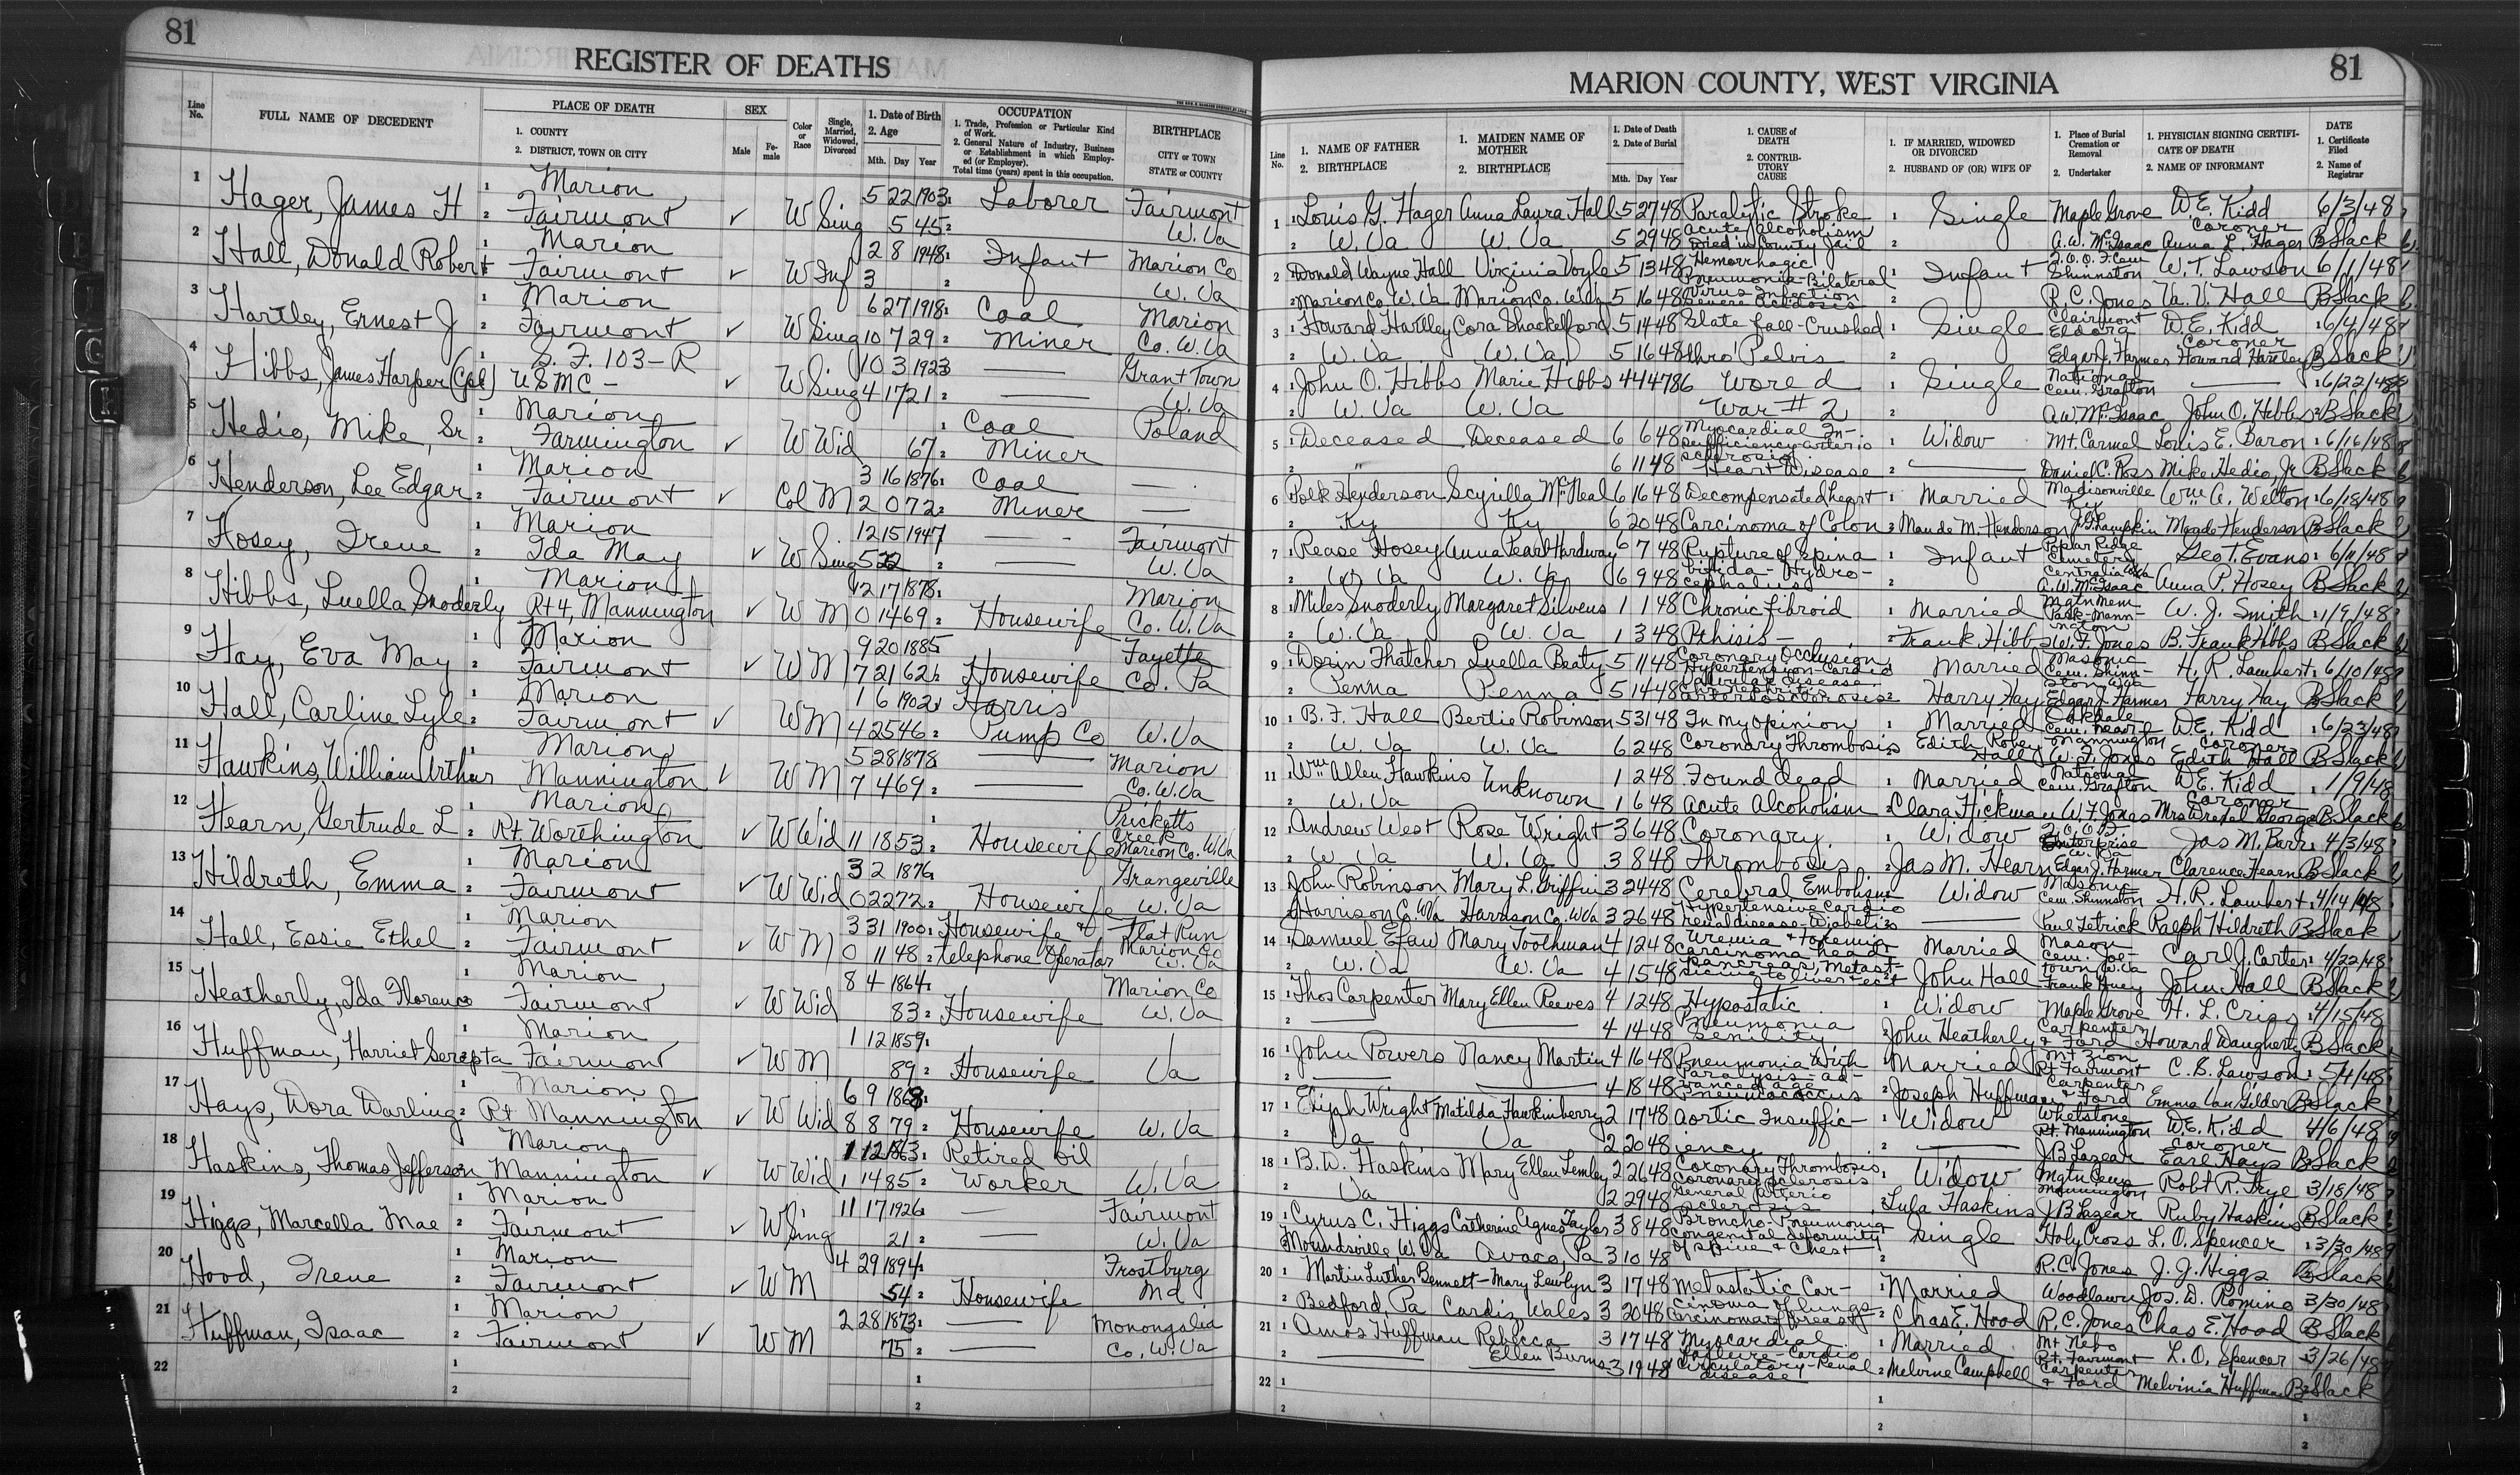 81
REGISTER OF DEATHS
Line No.
FULL NAME OF DECEDENT
PLACE OF DEATH
1. COUNTY
2. DISTRICT, TOWN OR CITY
SEX
Male
Female
Color or Race
Single, Married, Widowed, Divorced
1. Date of Birth
2. Age
Mth. Day Year
OCCUPATION
1. Trade, Profession or Particular Kind of Work.
2. General Nature of Industry, Business or Establishment in which Employed (or Employer).
Total time (years) spent in this occupation.
BIRTHPLACE
CITY or TOWN
STATE or COUNTY
1 Hager, James H 1 Marion 5 22 1903 1 Laborer Fairmont
2 Fairmont ✓ W Sing 5 45 2 W. Va
2 Hall, Donald Robert 1 Marion 2 8 1948 1 Infant Marion Co
2 Fairmont ✓ W Inf 3 2 W. Va
3 Hartley, Ernest J 1 Marion 6 27 1918 1 Coal Marion
2 Fairmont ✓ W Sing 10 7 29 2 Miner Co. W. Va
4 Hibbs, James Harper (Cpl) 1 S. F. 103-R 10 3 1923 Grant Town
USMC - ✓ W Sing 4 17 21 2 W. Va
5 Hedio, Mike, Sr 1 Marion 1 Coal Poland
2 Farmington ✓ W Wid 67 2 Miner
6 Henderson, Lee Edgar 1 Marion 3 16 1876 1 Coal —
2 Fairmont ✓ Col M 2 0 72 2 Miner —
7 Hosey, Irene 1 Marion 12 15 1947 — Fairmont
2 Ida May ✓ W Sing 5 22 2 — W. Va
8 Hibbs, Luella Snoderly 1 Marion 12 17 1878 1 Marion
Rt 4, Mannington ✓ W M 0 14 69 2 Housewife Co. W. Va
9 Hay, Eva May 1 Marion 9 20 1885 Fayette
2 Fairmont ✓ W M 7 21 62 2 Housewife Co. Pa
10 Hall, Carline Lyle 1 Marion 1 6 1902 1 Harris
2 Fairmont ✓ W M 4 25 46 2 Pump Co W. Va
11 Hawkins, William Arthur 1 Marion 5 28 1878 — Marion
Mannington ✓ W M 7 4 69 2 — Co. W. Va
12 Hearn, Gertrude L 1 Marion 1 Pricketts Creek
2 Rt. Worthington ✓ W Wid 11 18 53 2 Housewife Marion Co. W. Va
13 Hildreth, Emma 1 Marion 3 2 1876 Grangeville
2 Fairmont ✓ W Wid 0 22 72 2 Housewife W. Va
14 Hall, Essie Ethel 1 Marion 3 31 1900 1 Housewife & Flat Run
2 Fairmont ✓ W M 0 11 48 2 telephone Operator Marion Co W. Va
15 Heatherly, Ida Florence 1 Marion 8 4 1864 1 Marion Co
Fairmont ✓ W Wid 83 2 Housewife W. Va
16 Huffman, Harriet Serepta 1 Marion 1 12 1859 1
Fairmont ✓ W M 89 2 Housewife Va
17 Hays, Dora Darling 1 Marion 6 9 1868 1
2 Rt Mannington ✓ W Wid 8 8 79 2 Housewife W. Va
18 Haskins, Thomas Jefferson 1 Marion 1 12 1863 1 Retired oil
Mannington ✓ W Wid 1 14 85 2 Worker W. Va
19 Higgs, Marcella Mae 1 Marion 11 17 1926 — Fairmont
2 Fairmont ✓ W Sing 21 2 — W. Va
20 Hood, Irene 1 Marion 4 29 1894 1 Frostburg
2 Fairmont ✓ W M 54 2 Housewife Md
21 Huffman, Isaac 1 Marion 2 28 1873 1 — Monongalia
2 Fairmont ✓ W M 75 2 — Co. W. Va
22 1 1
2 2
81
MARION COUNTY, WEST VIRGINIA
Line No.
1. NAME OF FATHER
2. BIRTHPLACE
1. MAIDEN NAME OF MOTHER
2. BIRTHPLACE
1. Date of Death
2. Date of Burial
Mth. Day Year
1. CAUSE of DEATH
2. CONTRIBUTORY CAUSE
1. IF MARRIED, WIDOWED OR DIVORCED
2. HUSBAND OF (OR) WIFE OF
1. Place of Burial Cremation or Removal
2. Undertaker
1. PHYSICIAN SIGNING CERTIFICATE OF DEATH
2. NAME OF INFORMANT
DATE
1. Certificate Filed
2. Name of Registrar
1 1 Louis G. Hager Anna Laura Hall 5 27 48 Paralytic Stroke 1 Single Maple Grove W.E. Kidd Coroner 6/3/48
2 W. Va W. Va 5 29 48 Acute Alcoholism Died in County Jail 2 A. W. McIsaac Anna L. Hager B Slack
2 Donald Wayne Hall Virginia Voyle 5 13 48 Hemorrhagic Pneumonia-Bilateral 1 Infant I. O. O. F. Cem Shinnston W. T. Lawson 6/1/48
2 Marion Co. W. Va Marion Co. W. Va 5 16 48 Virus Infection Severe Acidosis 2 R. C. Jones Va. V. Hall B Slack
3 1 Howard Hartley Cora Shackelford 5 14 48 Slate fall-Crushed 1 Single Clairmont Eldora W. E. Kidd Coroner 6/4/48
2 W. Va W. Va 5 16 48 thro' Pelvis 2 Edgar J. Harmer Howard Hartley B Slack
4 1 John O. Hibbs Marie Hibbs World 1 Single National Cem. Grafton — 6/22/48
2 W. Va W. Va War #2 2 A. W. McIsaac John O. Hibbs B Slack
5 1 Deceased Deceased 6 6 48 Myocardial Insufficiency-arterio 1 Widow Mt. Carmel Louis E. Baron 6/16/48
2 " 6 11 48 sclerosis Heart Disease 2 — Daniel C. Ross Mike Hedio, Jr B Slack
6 1 Polk Henderson Scyrilla McNeal 6 16 48 Decompensated heart 1 Married Madisonville Ky Wm A. Welton 6/18/48
2 Ky Ky 6 20 48 Carcinoma of Colon 2 Maude M. Henderson Lampkin Maude Henderson B Slack
7 1 Rease Hosey Anna Pearl Hardway 6 7 48 Rupture of Spina 1 Infant Poplar Ridge Cemetery Geo T. Evans 6/11/48
2 W. Va W. Va 6 9 48 bifida-Hydrocephalus 2 Centralia W. Va A. W. McIsaac Anna P. Hosey B Slack
8 1 Miles Snoderly Margaret Silvens 1 1 48 Chronic fibroid 1 Married Mgtn Mem Park-Mannington W. J. Smith 1/9/48
2 W. Va W. Va 1 3 48 Pthisis- 2 Frank Hibbs W. F. Jones B. Frank Hibbs B Slack
9 1 Dorin Thatcher Luella Beaty 5 11 48 Coronary Occlusion Hypertension-cardio 1 Married Masonic Cem. Shinnston, W. Va H. R. Lambert 6/10/48
2 Penna Penna 5 14 48 Valvular disease Chr. Nephritis arteriosclerosis 2 Harry Hay Edgar J. Harmer Harry Hay B Slack
10 1 B. F. Hall Bertie Robinson 5 31 48 In my opinion 1 Married Oakdale Cem. near Mannington W.E. Kidd Coroner 6/23/48
2 W. Va W. Va 6 2 48 Coronary Thrombosis 2 Edith Robey Hall W. F. Jones Edith Hall B Slack
11 1 Wm Allen Hawkins Unknown 1 2 48 Found dead 1 Married National Cem. Grafton W.E. Kidd Coroner 1/9/48
2 W. Va 1 6 48 Acute Alcoholism 2 Clara Hickman W. F. Jones Mrs Drexel George B Slack
12 1 Andrew West Rose Wright 3 6 48 Coronary 1 Widow I. O. O. F. Enterprise W. Va Jas M. Barr 4/3/48
2 W. Va W. Va 3 8 48 Thrombosis 2 Jas M. Hearn Edgar J. Harmer Clarence Hearn B Slack
13 1 John Robinson Mary L. Griffin 3 24 48 Cerebral Embolism Widow Masonic Cem. Shinnston H. R. Lambert 4/14/48
2 Harrison Co. W. Va Harrison Co. W. Va 3 26 48 Hypertensive Cardio renal disease-Diabetis — Paul Tetrick Ralph Hildreth B Slack
14 1 Samuel Efaw Mary Toothman 4 12 48 Uremia & toxemia Carcinoma head Married Mason Cem. Joetown W. Va Carl J. Carter 4/22/48
2 W. Va W. Va 4 15 48 Pancreas, Metast- 2 John Hall Frank Huey John Hall B Slack
15 1 Thos Carpenter Mary Ellen Reeves 4 12 48 Hypostatic 1 Widow Maple Grove H. L. Criss 4/15/48
2 — — 4 14 48 Pneumonia Senility 2 John Heatherly Carpenter & Ford Howard Daugherty B Slack
16 1 John Powers Nancy Martin 4 16 48 Pneumonia With Paralysis-ad- 1 Married Mt Zion Rt Fairmont C. S. Lawson 5/4/48
2 — — 4 18 48 vanced age Pneumococcus 2 Joseph Huffman Carpenter & Ford Emma Van Gilder B Slack
17 1 Elijah Wright Matilda Hawkinberry 2 17 48 Aortic Insuffic- 1 Widow Whetstone Rt. Mannington W.E. Kidd Coroner 4/6/48
2 Va Va 2 20 48 iency 2 — J B Lazear Earl Hays B Slack
18 1 B. W. Haskins Mary Ellen Lemley 2 26 48 Coronary Thrombosis Coronary Sclerosis 1 Widow Mgtn Cem Mannington Robt R. Frye 3/18/48
2 Va 2 29 48 General Arterio sclerosis Lula Haskins J B Lazear Ruby Haskins B Slack
19 1 Cyrus C. Higgs Catherine Agnes Taylor 3 8 48 Broncho-Pneumonia Congenital deformity 1 Single Holy Cross L. O. Spencer 3/30/48
Moundsville W. Va Avoca, Pa 3 10 48 of Spine & Chest 2 R. C. Jones J. J. Higgs B Slack
20 1 Martin Luther Bennett-Mary Lewlyn 3 17 48 Metastatic Car- 1 Married Woodlawn Jos. D. Romino 3/30/48
2 Bedford, Pa Cardis, Wales 3 20 48 cinoma of lungs Carcinoma of breast 2 Chas E. Hood R. C. Jones Chas E. Hood B Slack
21 1 Amos Huffman Rebecca 3 17 48 Myocardial 1 Married Mt Nebo Rt. Fairmont L. O. Spencer 3/26/48
2 — Ellen Burns 3 19 48 failure-Cardio Circulatory-Renal disease 2 Melvine Campbell Carpenter & Ford Melvinia Huffman B Slack
22 1 1 1
2 2 2